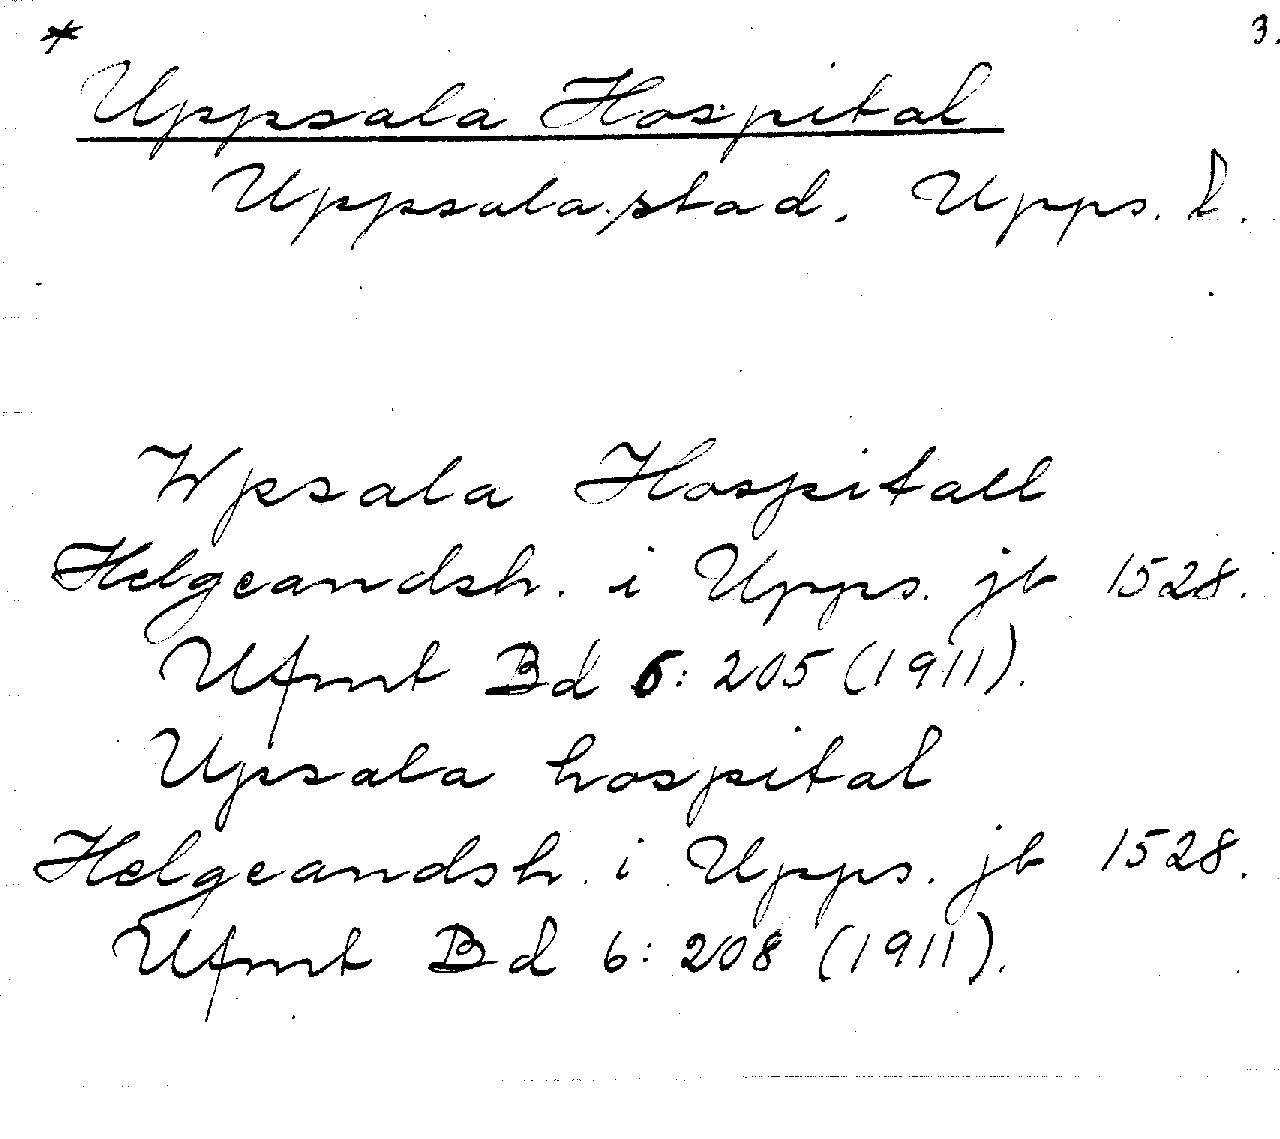 * 3.
Uppsala Hospital
Uppsala stad. Upps. l.
Wpsala Hospitall
Helgeandsh. i Upps. jb 1528.
Ufmt Bd 6: 205 (1911).
Upsala hospital
Helgeandsh. i Upps. jb 1528.
Ufmt Bd 6: 208 (1911).